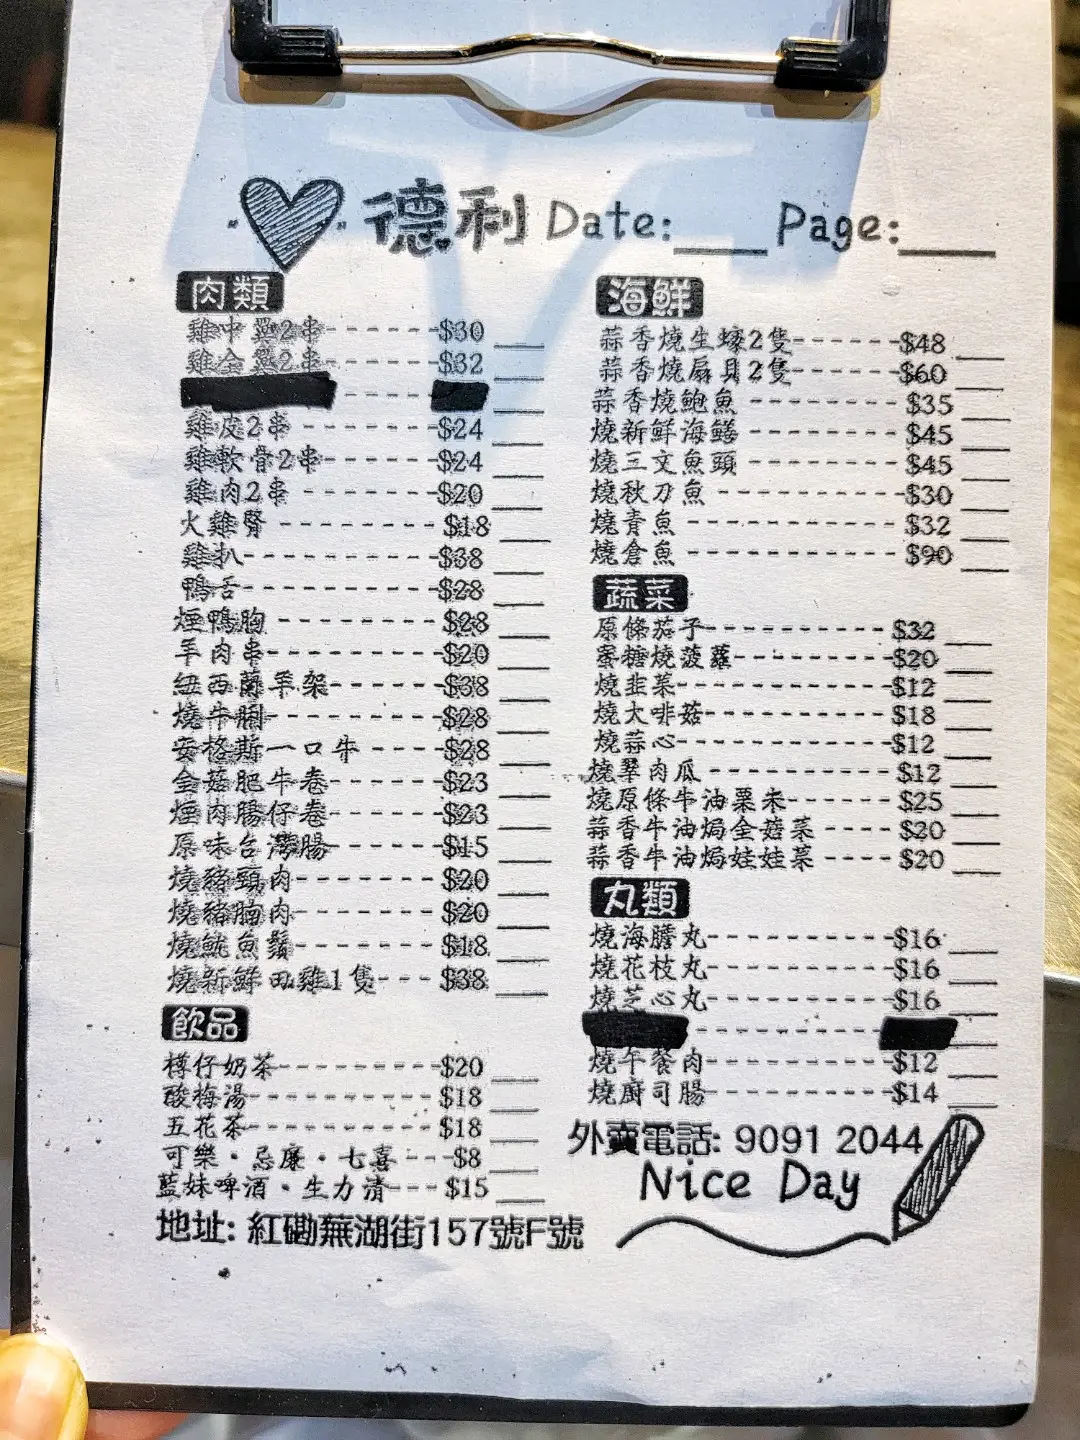 德利 Date:____ Page:____
肉類
雞中翼2串-------$30 ___
雞全翼2串-------$32 ___
雞皮2串--------$24 ___
雞軟骨2串------$24 ___
雞肉2串--------$20 ___
火雞腎---------$18 ___
雞扒-----------$38 ___
鴨舌-----------$28 ___
煙鴨胸---------$28 ___
羊肉串---------$20 ___
紐西蘭羊架-----$38 ___
燒牛脷---------$28 ___
安格斯一口牛----$28 ___
金菇肥牛卷-----$23 ___
煙肉腸仔卷-----$23 ___
原味台灣腸-----$15 ___
燒豬頸肉-------$20 ___
燒豬腩肉-------$20 ___
燒魷魚鬚-------$18 ___
燒新鮮田雞1隻---$38 ___
飲品
樽仔奶茶-------$20 ___
酸梅湯---------$18 ___
五花茶---------$18 ___
可樂·忌廉·七喜---$8 ___
藍妹啤酒·生力清---$15 ___
地址: 紅磡蕪湖街157號F號
海鮮
蒜香燒生蠔2隻------$48 ___
蒜香燒扇貝2隻------$60 ___
蒜香燒鮑魚--------$35 ___
燒新鮮海鱔--------$45 ___
燒三文魚頭--------$45 ___
燒秋刀魚---------$30 ___
燒青魚-----------$32 ___
燒倉魚-----------$90 ___
蔬菜
原條茄子----------$32 ___
蜜糖燒菠蘿--------$20 ___
燒韭菜-----------$12 ___
燒大啡菇---------$18 ___
燒蒜心-----------$12 ___
燒翠肉瓜---------$12 ___
燒原條牛油粟米-----$25 ___
蒜香牛油焗金菇菜----$20 ___
蒜香牛油焗娃娃菜----$20 ___
丸類
燒海膽丸---------$16 ___
燒花枝丸---------$16 ___
燒芝心丸---------$16 ___
燒午餐肉---------$12 ___
燒廚司腸---------$14 ___
外賣電話: 9091 2044
Nice Day